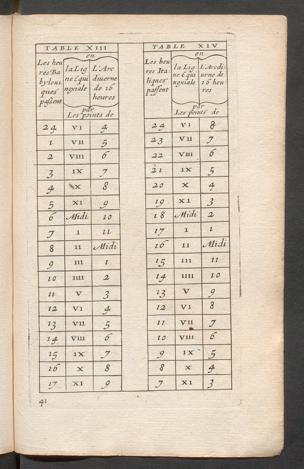 TABLE XIII
en
Les heures Babyloniques passent
la Ligne Equinoxiale
L'Arc diuerne de 16 heures
par
Les points de
24 VI 4
1 VII 5
2 VIII 6
3 IX 7
4 X 8
5 XI 9
6 Midi 10
7 I 11
8 II Midi
9 III 1
10 IIII 2
11 V 3
12 VI 4
13 VII 5
14 VIII 6
15 IX 7
16 X 8
17 XI 9
41
TABLE XIV
en
Les heures Italiques passent
la Ligne Equinoxiale
L'Arc diurne de 16 heures
par
Les points de
24 VI 8
23 VII 7
22 VIII 6
21 IX 5
20 X 4
19 XI 3
18 Midi 2
17 I 1
16 II Midi
15 III 11
14 IIII 10
13 V 9
12 VI 8
11 VII 7
10 VIII 6
9 IX 5
8 X 4
7 XI 3